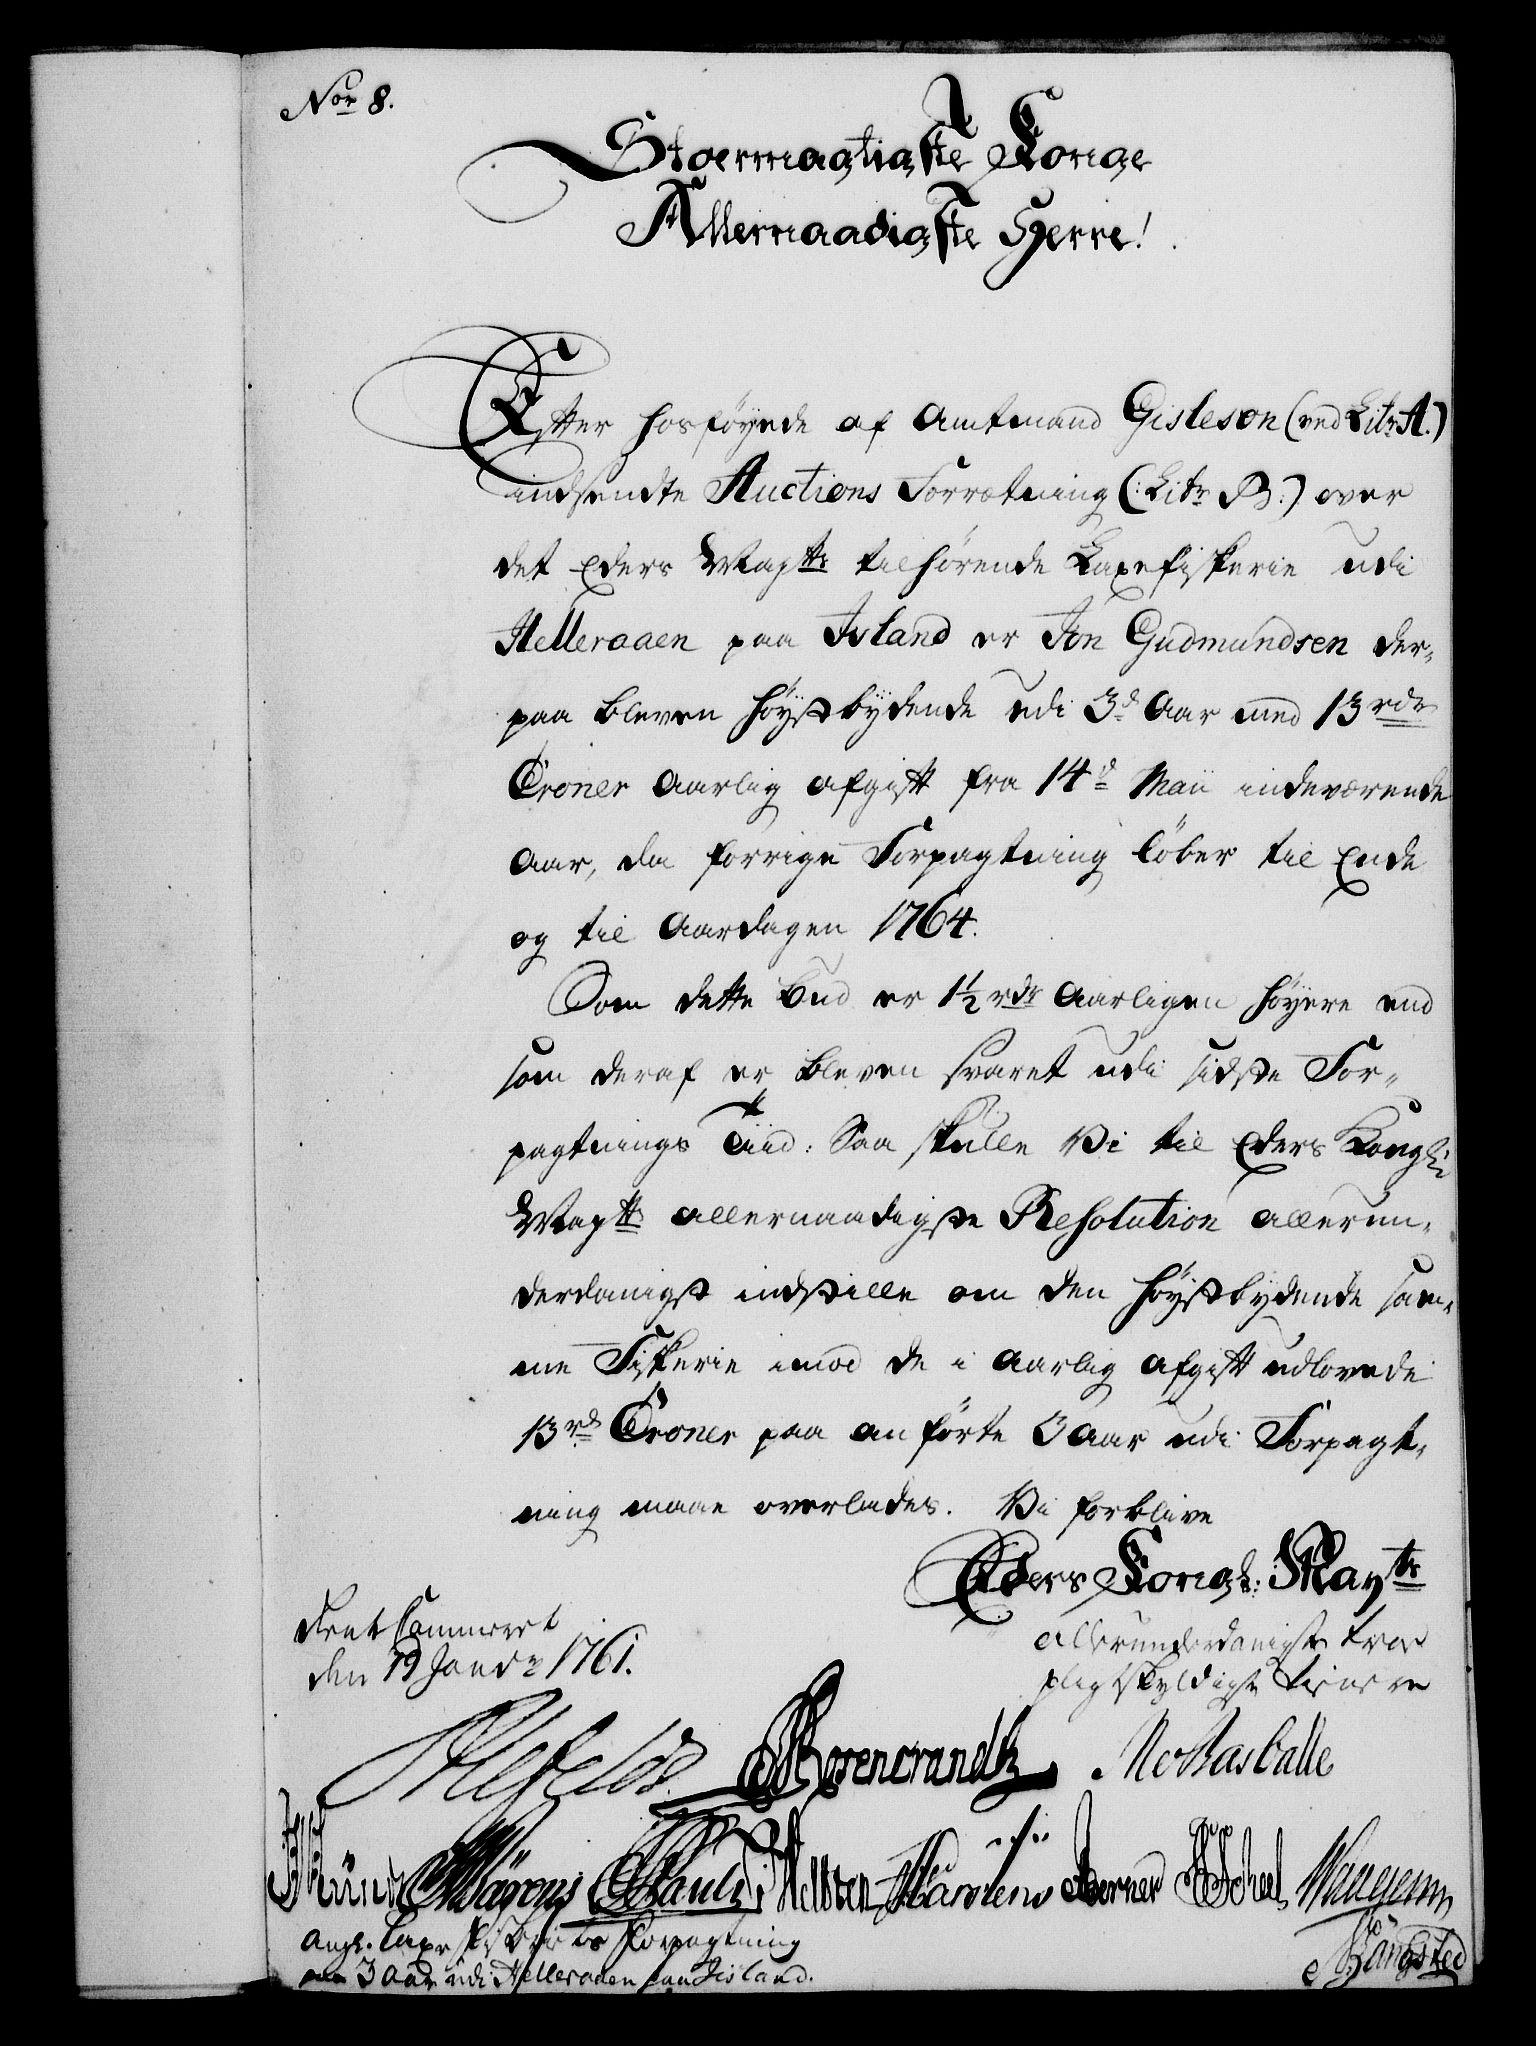 Nor 8.
Stoermægtigste Konge
Allernaadigste Herre!
Efter hosføyede af Amtmand Gisleson (ved Litr A.)
indsendte Auctions Forrætning (: Litr B:) over
det Eders Maytts tilhørende Laxefiskerie udi
Helleraaen paa Island er Jon Gudmundsen der-
paa bleven høystbydende udi 3de Aar med 13 rdr
Croner aarlig afgift fra 14d Maii indeværende
Aar, da forrige Forpagtning løber til Ende
og til Aardagen 1764.
Som dette bud er 1½ rdr aarligen høyere end
som deraf er bleven svaret udi sidste For-
pagtnings Tiid: Saa skulle Vi til Eders Kongli
Maytts allernaadigste Resolution allerun-
derdanigst indstille om den høystbydende sam-
me Fiskerie imod de i aarlig afgift udlovede
13 rd Croner paa anførte 3 aar udi Forpagt-
ning maae overlades. Vi forblive
Eders Kongl: Mayts
allerunderdanigste troe
pligtskyldigste tienere
Rente Cammeret
den 19 Janv 1761.
Ahlefeldt Rosencrandtz
Marons Pauli Holsten Berner Scheel
Rangsted
ang. Laxe fiskeriets Forpagtning
paa 3 Aar udi Helleraaen paa Iisland.